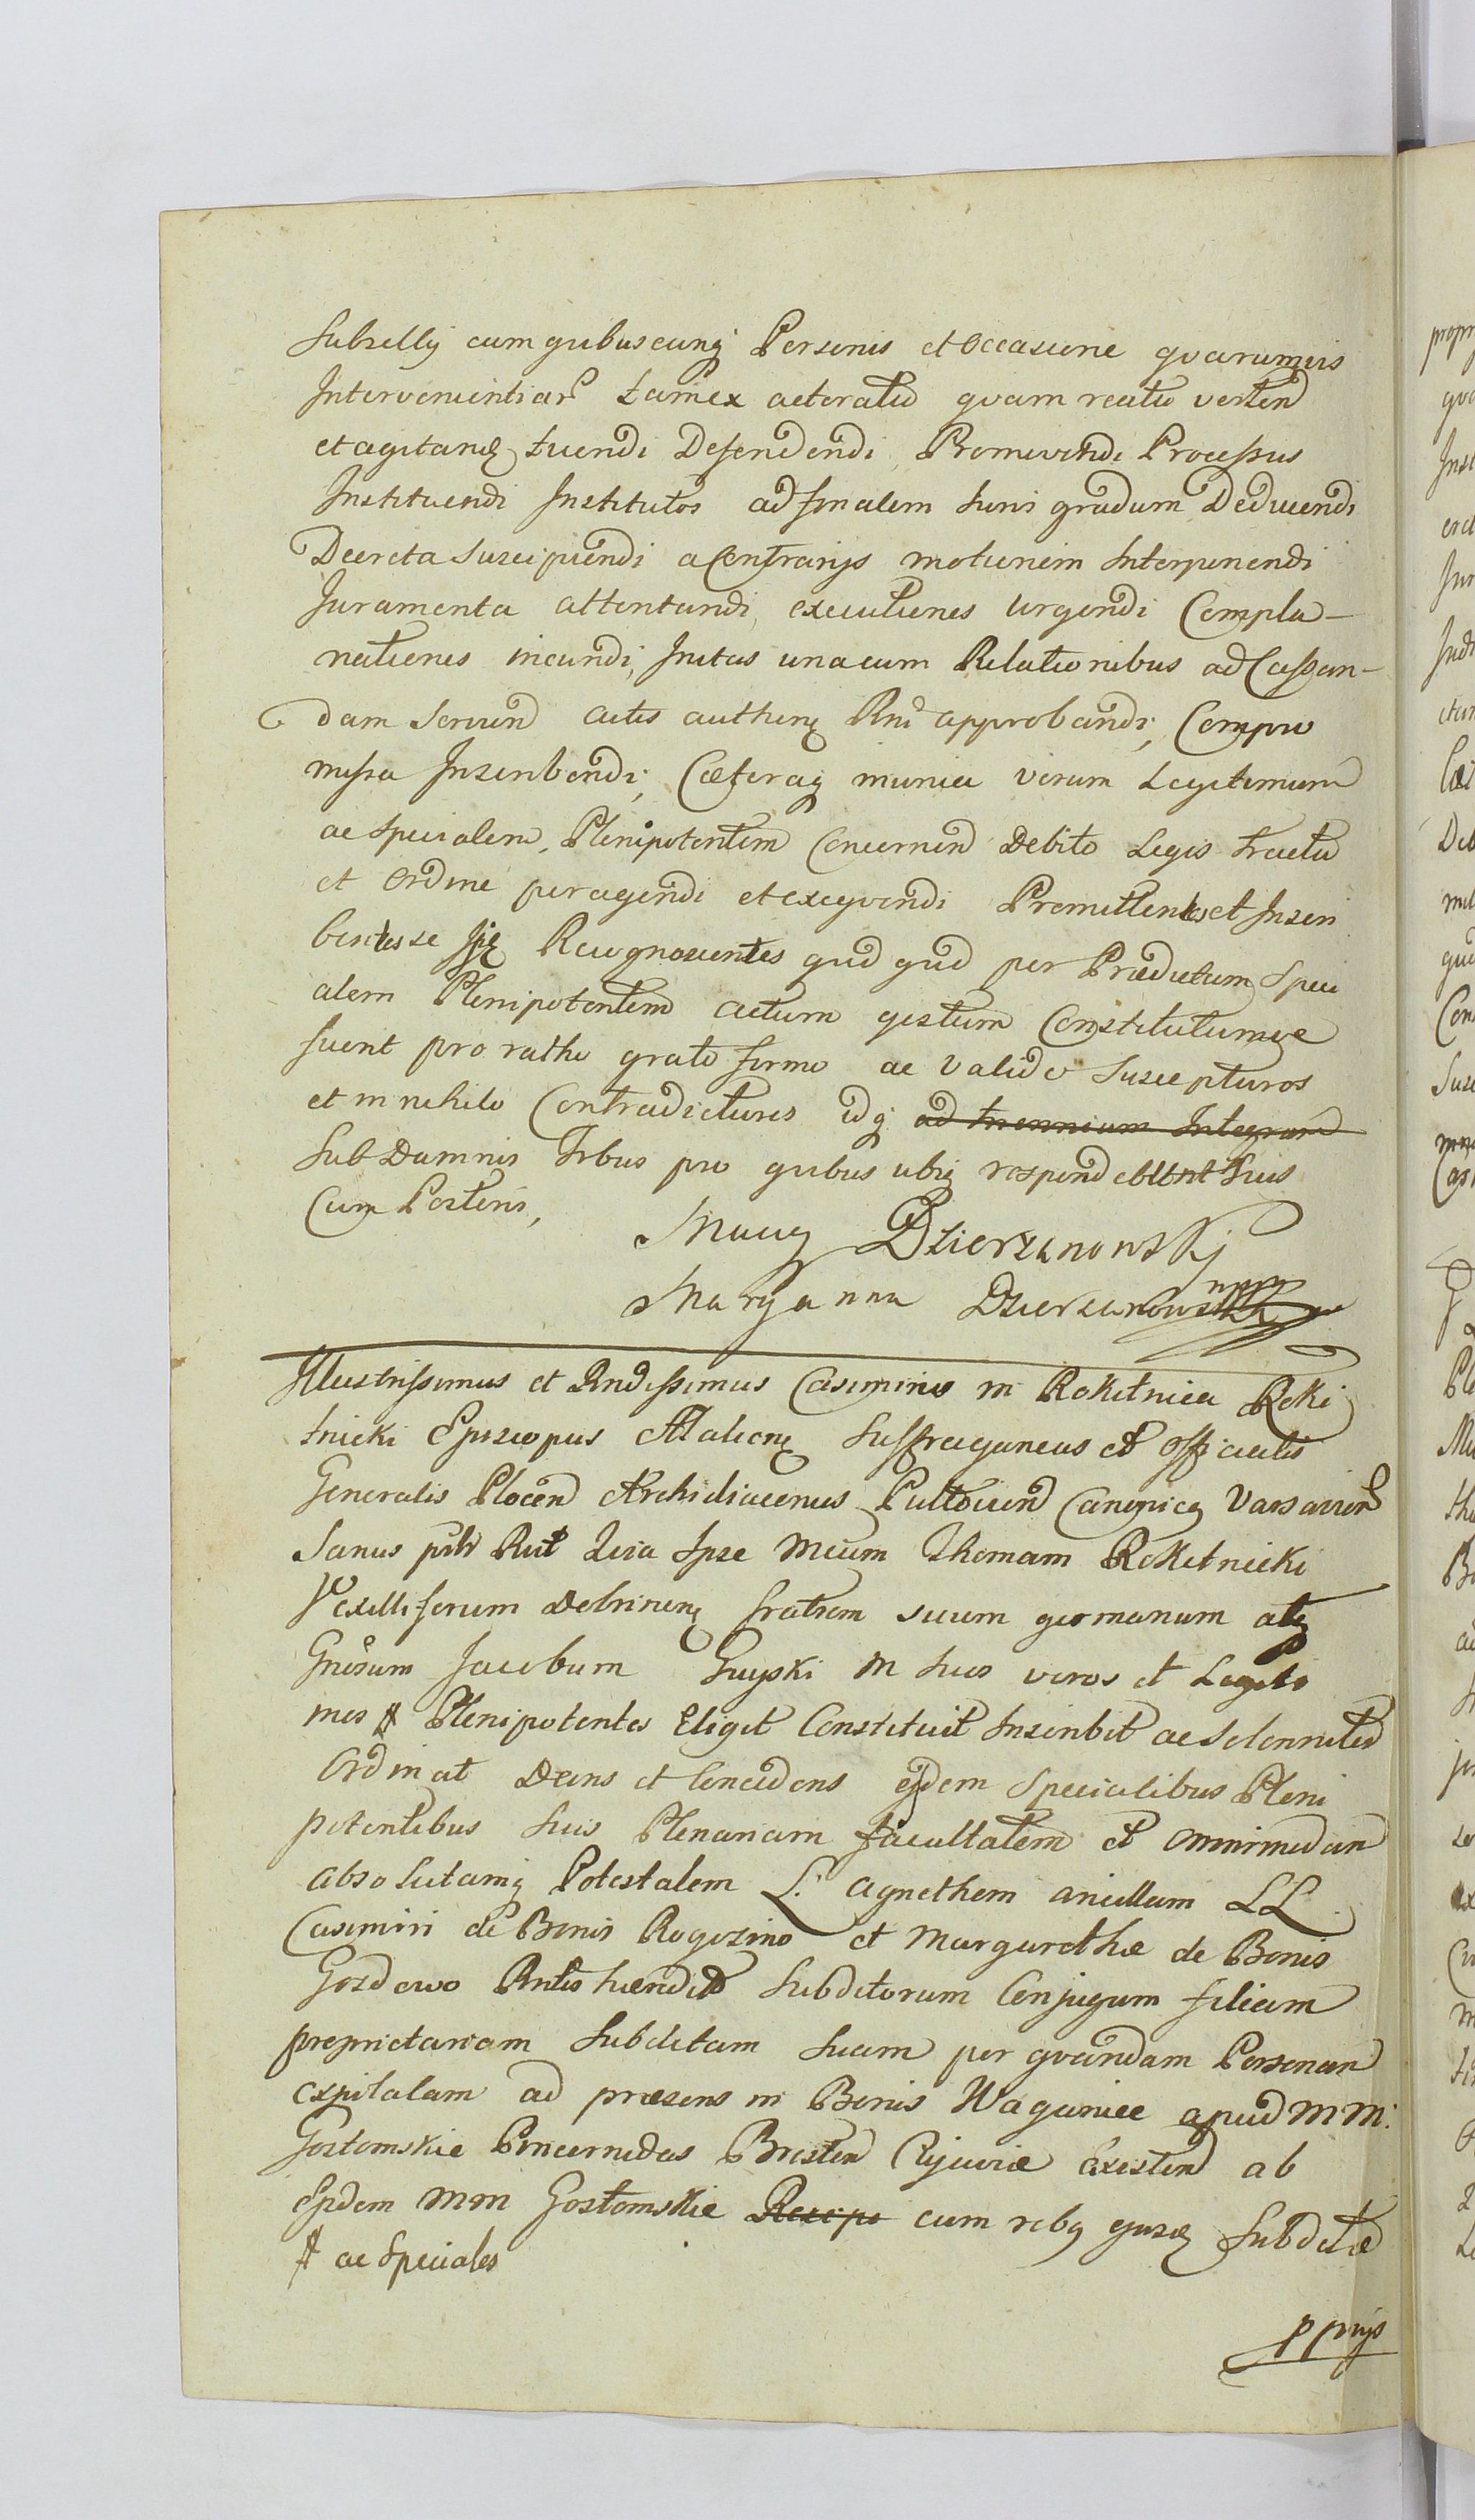 Subsellij cum quibuscunq Personis et Occasione quarumvis
Intervenientiar tam ex actoratu quam reatu verten
et agitan tuendi Defendendi, Promovendi Processus
Instituendi Institutos ad finalem Iuris gradum Deducendi
Decreta suscipiendi a Contrarijs motionem Interponendi
Iuramenta attentandi, executiones urgendi Compla-
nationes ineundi, Initas unacum Relationibus ad Cassan-
dam Servien actis authen Rni approbandi, Compro
missa Inscribendi, Caeteraq munia verum Legitimum
ac specialem, Plenipotentem Concernen Debito Legis tractu
et Ordine peragendi et exequendi Promittentes et Inscri
bentes se Recognoscentes quid quid per Praedictum Speci
alem Plenipotentem actum gestum Constitutumve
fuerit pro ratho grato firmo ac valido Suscepturos
et in nihilo Contradicturos idq ad triennium Integrum
Sub Damnis Trbus pro quibus ubiq respondebunt Suis
Cum Posteris,
Maciej Dzierzanowskj
Maryanna Dzierzanowska mpp
Illustrissimus et Rndissimus Casimirus in Rokitnica Roki
tnicki Episcopus Suffraganeus et Officialis
Generalis Plocen Archidiaconus Pultovien Canonicq Varsavien
Sanus Ipse Mcum Thomam Rokitnicki
Vexilliferum Dobrinen fratrem suum germanum atq
Gnosum Jacobum Guyski in suos veros et Legiti
mos # Plenipotentes Eligit Constituit Inscribit ac Solenniter
Ordinat Dans et Concedens ejsdem Specialibus Pleni
potentibus Suis Plenariam facultatem et omnimodam
absolutamq Potestatem L. Agnethem ancillam LL
Casimiri de Bonis Rogozino et Margarethae de Bonis
Gozdowo haeredit Subditorum Conjugum filiam
propriectariam Subditam Suam per quandam Personam
expilatam ad praesens in Bonis Waganiec apud MM:
Gostomskie Pincernidas Bresten Cujaviae Existen ab
Ejsdem MM Gostomskie Recipe cum rebq ejusd Subditae
# ac Speciales
pprijs